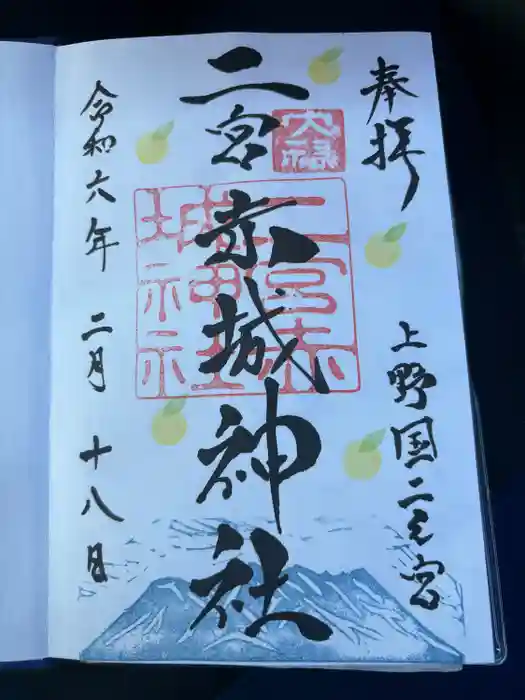 奉拝
上野国二之宮
二宮赤城神社
二宮赤城神社
令和六年 二月 十八日